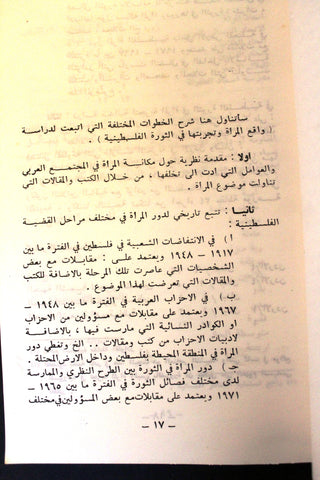 سأتناول هنا شرح الخطوات المختلفة التي اتبعت لدراسة
( واقع المرأة وتجربتها في الثورة الفلسطينية ) .
أولا : مقدمة نظرية حول مكانة المرأة في المجتمع العربي
والعوامل التي أدت الى تخلفها ، من خلال الكتب والمقالات التي
تناولت موضوع المرأة .
ثانيا : تتبع تاريخي لدور المرأة في مختلف مراحل القضية
الفلسطينية :
أ ) في الانتفاضات الشعبية في فلسطين في الفترة ما بين
١٩١٧ – ١٩٤٨ ويعتمد على : مقابلات مع بعض
الشخصيات التي عاصرت تلك المرحلة بالاضافة للكتب
والمقالات التي تعرضت لهذا الموضوع .
ب ) في الاحزاب العربية في الفترة ما بين ١٩٤٨ –
١٩٦٧ ويعتمد على مقابلات مع مسؤولين من الاحزاب
او الكوادر النسائية التي مارست فيها ، بالاضافة
لادبيات الاحزاب من كتب ومقالات .. الخ وتغطي دور
المرأة في المنطقة المحيطة بفلسطين وداخل الارض المحتلة .
جـ ) دور المرأة في الثورة بين الطرح النظري والممارسة
لدى مختلف فصائل الثورة في الفترة ما بين ١٩٦٥ –
١٩٧١ ويعتمد على مقابلات مع بعض المسؤولين في مختلف
– ١٧ –